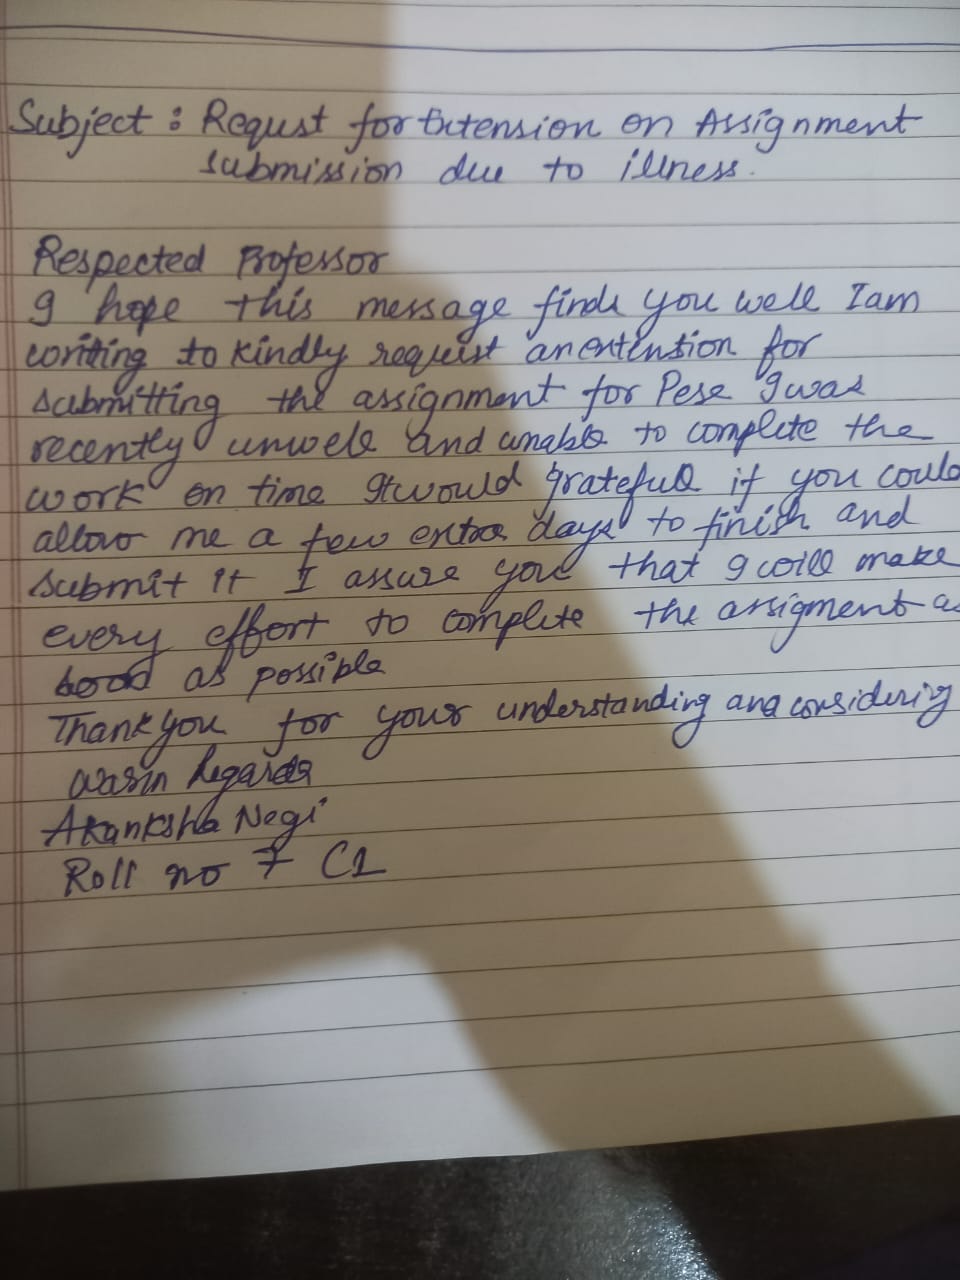 Subject : Requst for Extension on Assignment
submission due to illness.
Respected Professor
I hope this message finds you well I am
writing to kindly request an extention for
submitting the assignment for Pese I was
recently unwell and unable to complete the
work on time It would grateful if you could
allow me a few extra days to finish and
submit it I assure you that I will make
every effort to complete the assigment as
as possible
Thank you for your understanding and considering
Warm Regards
Akanksha Negi
Roll no 7 C1